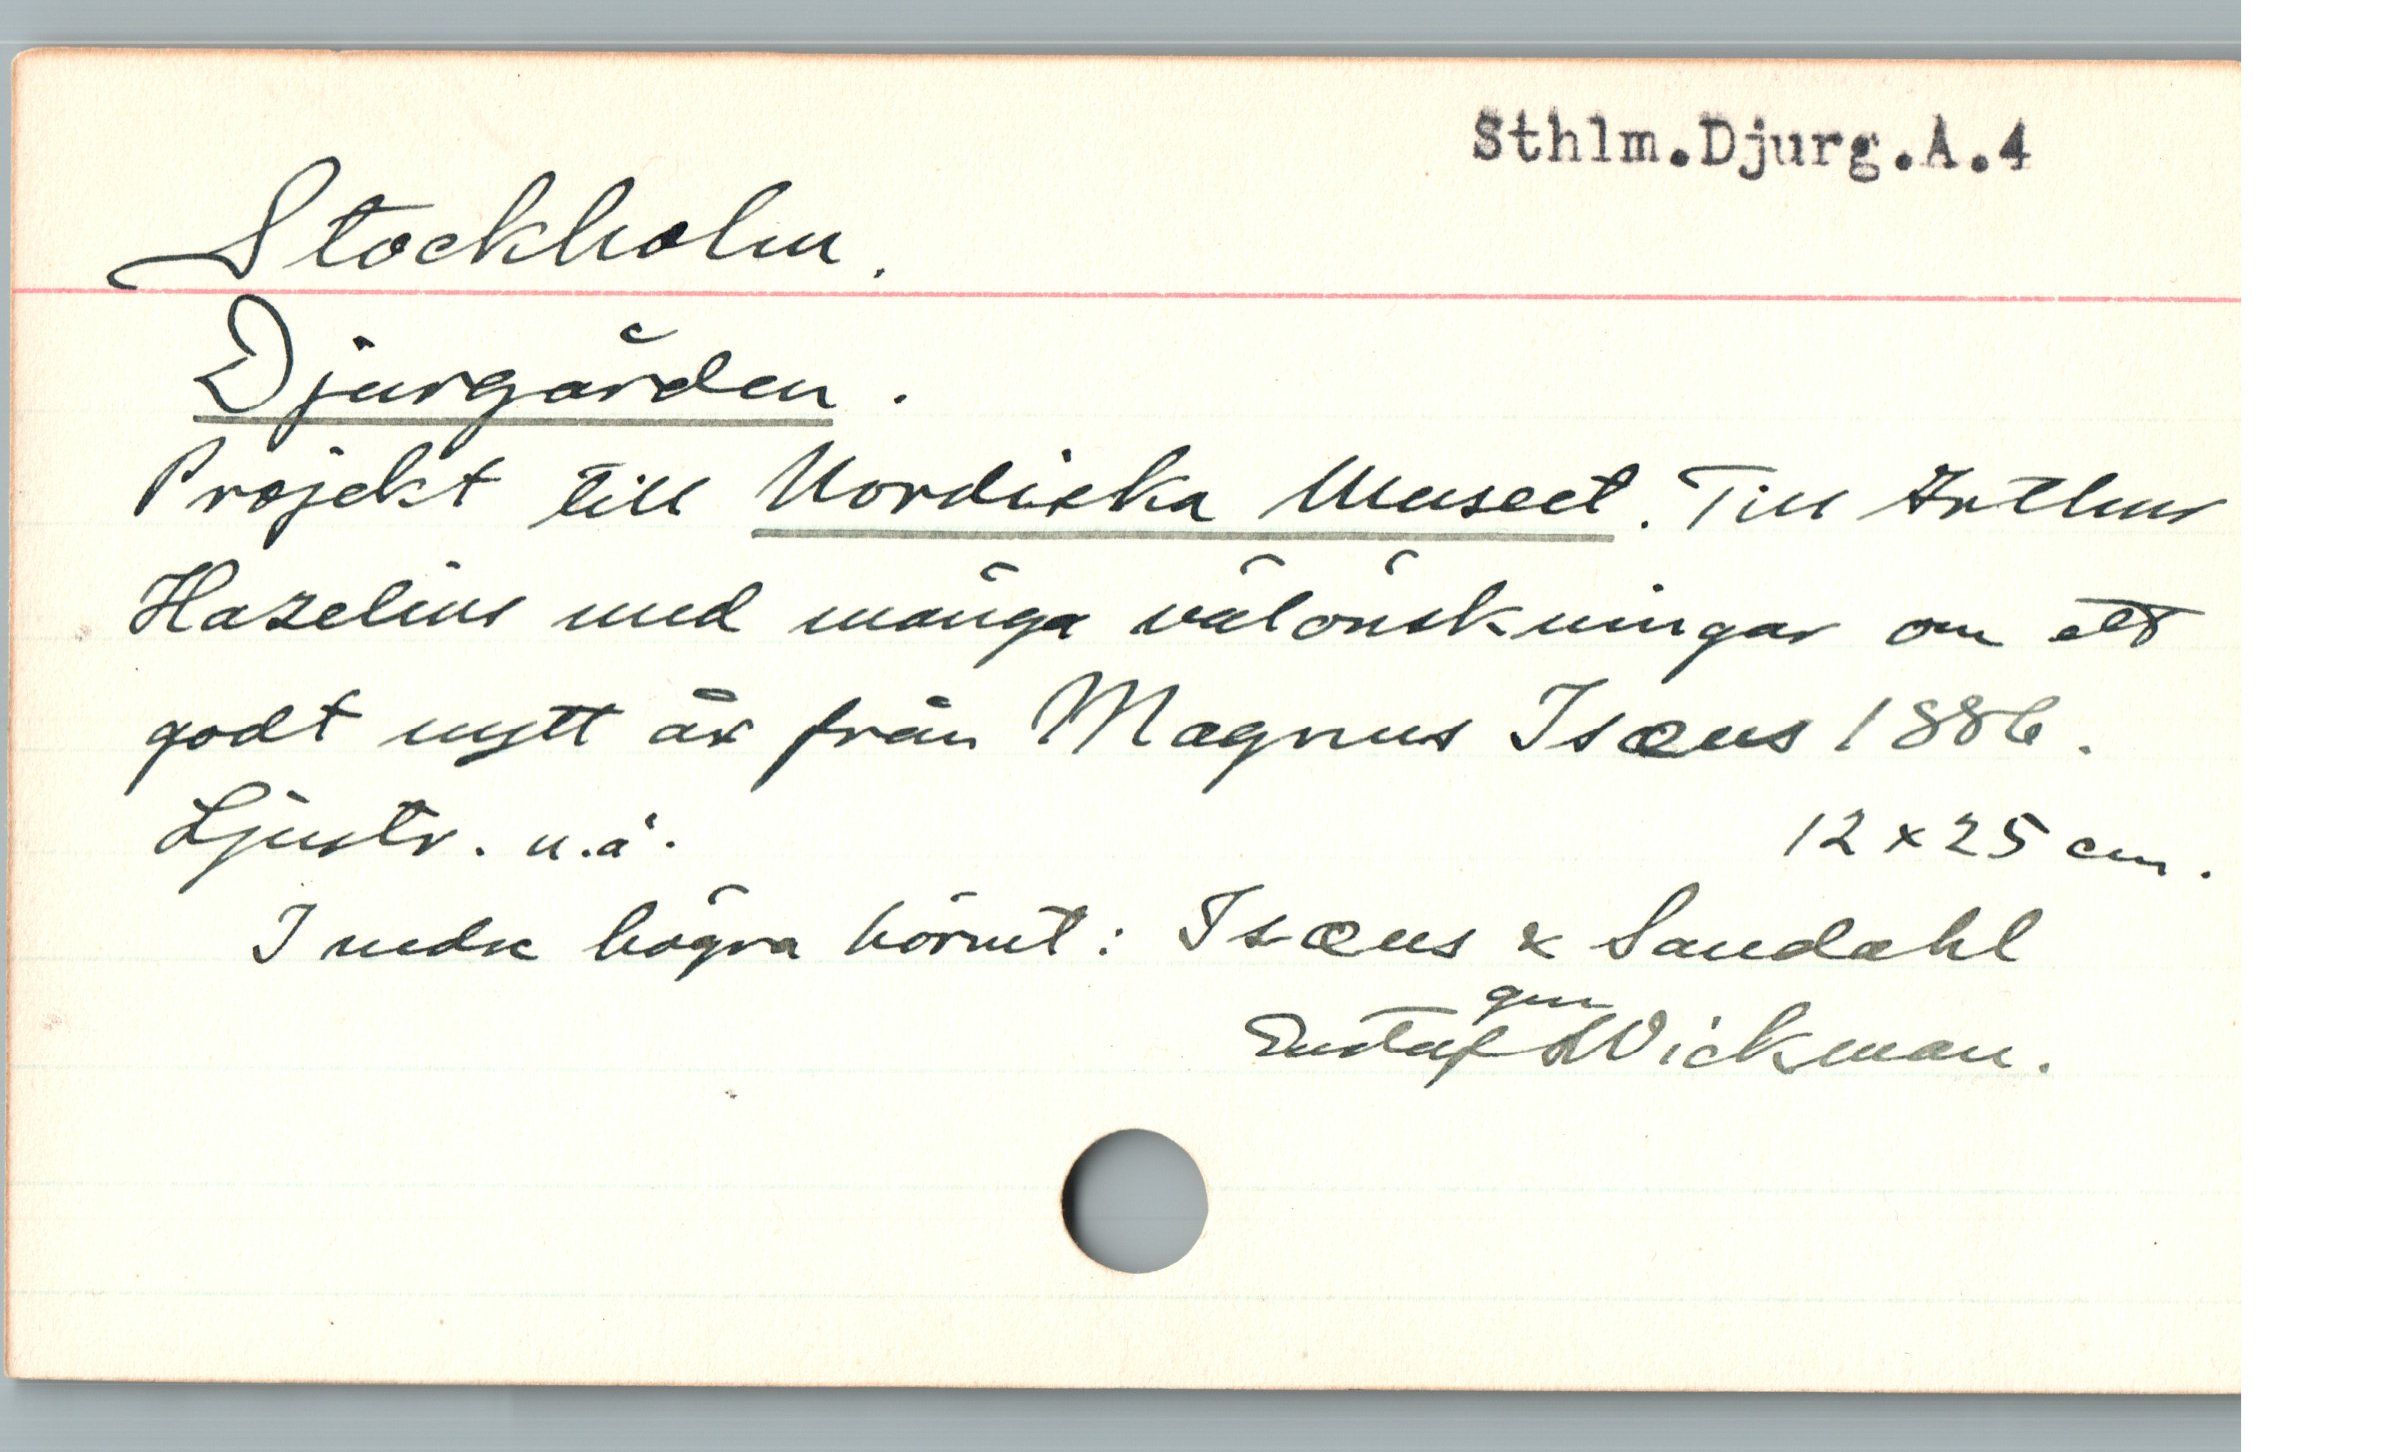 Sthlm.Djurg.A.4
Stockholm.
Djurgården.
Projekt till Nordiska Museet. Till Arthur
Hazelius med många välönskningar om ett
godt nytt år från Magnus Isæus 1886.
Ljustr. u.å.
12 x 25 cm.
I nedre högra hörnet: Isæus & Sandahl
gm
Gustaf Wickman.